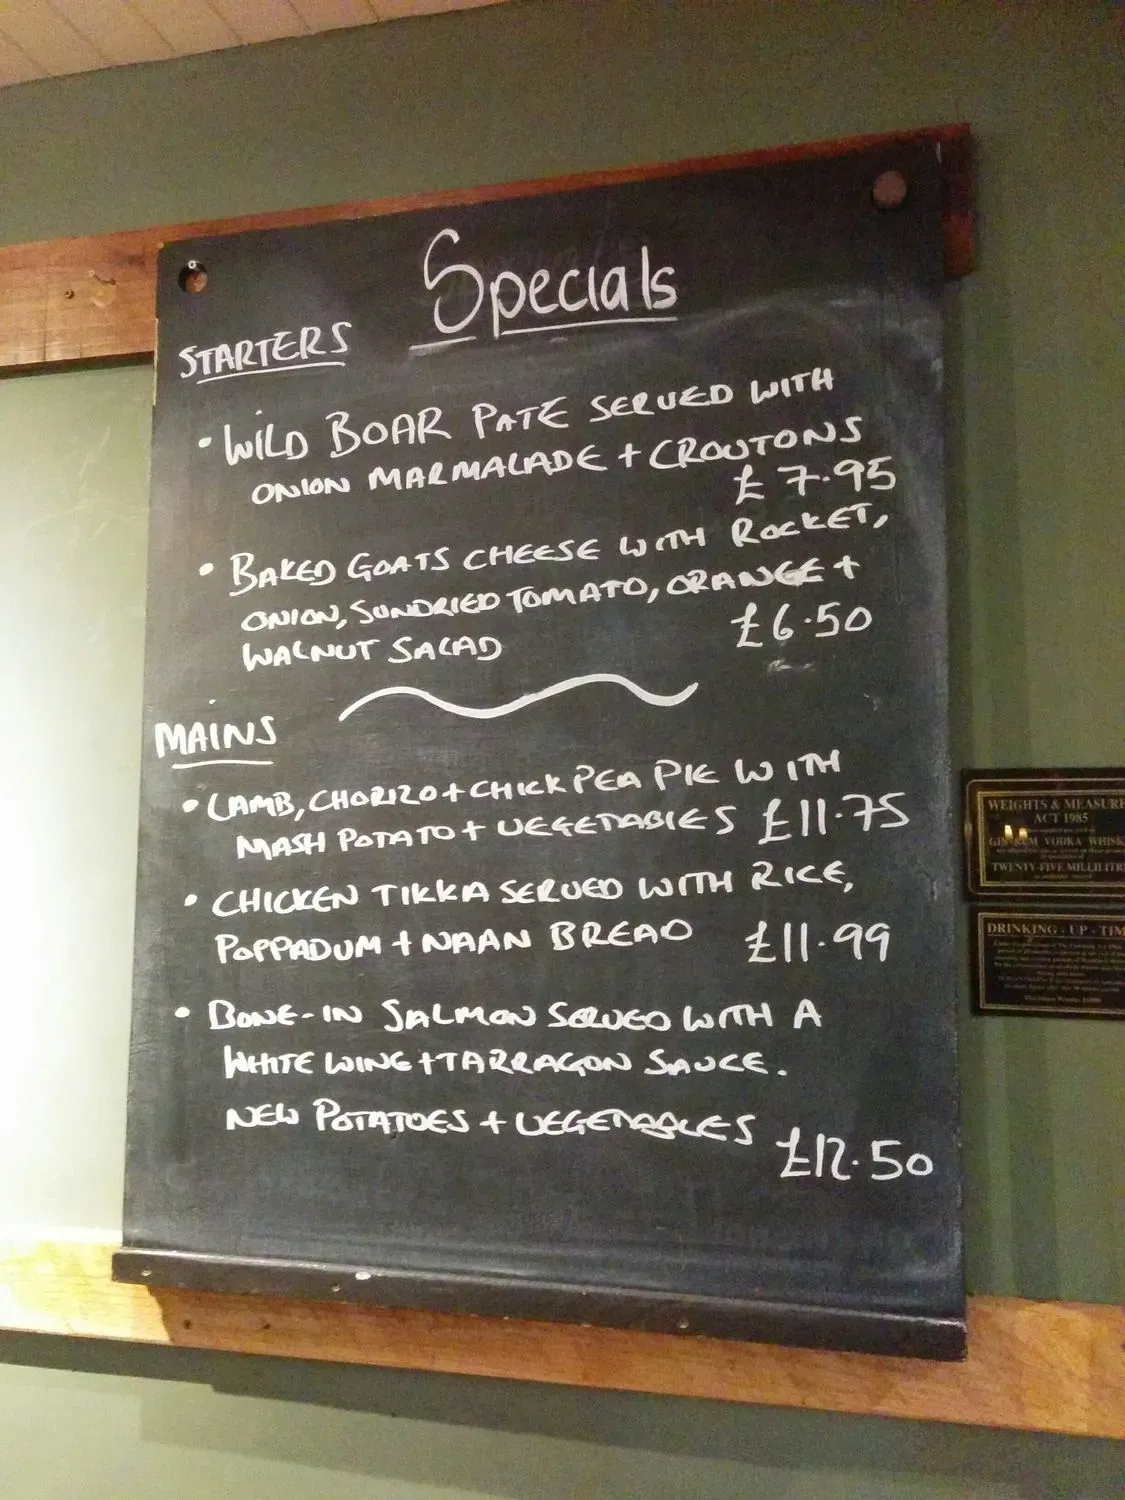 Specials
STARTERS
• WILD BOAR PATE SERVED WITH
ONION MARMALADE + CROUTONS
£7.95
• BAKED GOATS CHEESE WITH ROCKET,
ONION, SUNDRIED TOMATO, ORANGE +
WALNUT SALAD £6.50
MAINS
• LAMB, CHORIZO + CHICKPEA PIE WITH
MASH POTATO + VEGETABLES £11.75
• CHICKEN TIKKA SERVED WITH RICE,
POPPADUM + NAAN BREAD £11.99
• BONE-IN SALMON SERVED WITH A
WHITE WINE + TARRAGON SAUCE.
NEW POTATOES + VEGETABLES
£12.50
WEIGHTS & MEASURE
ACT 1985
GIN RUM VODKA WHISK
TWENTY-FIVE MILLILITR
DRINKING-UP-TIM